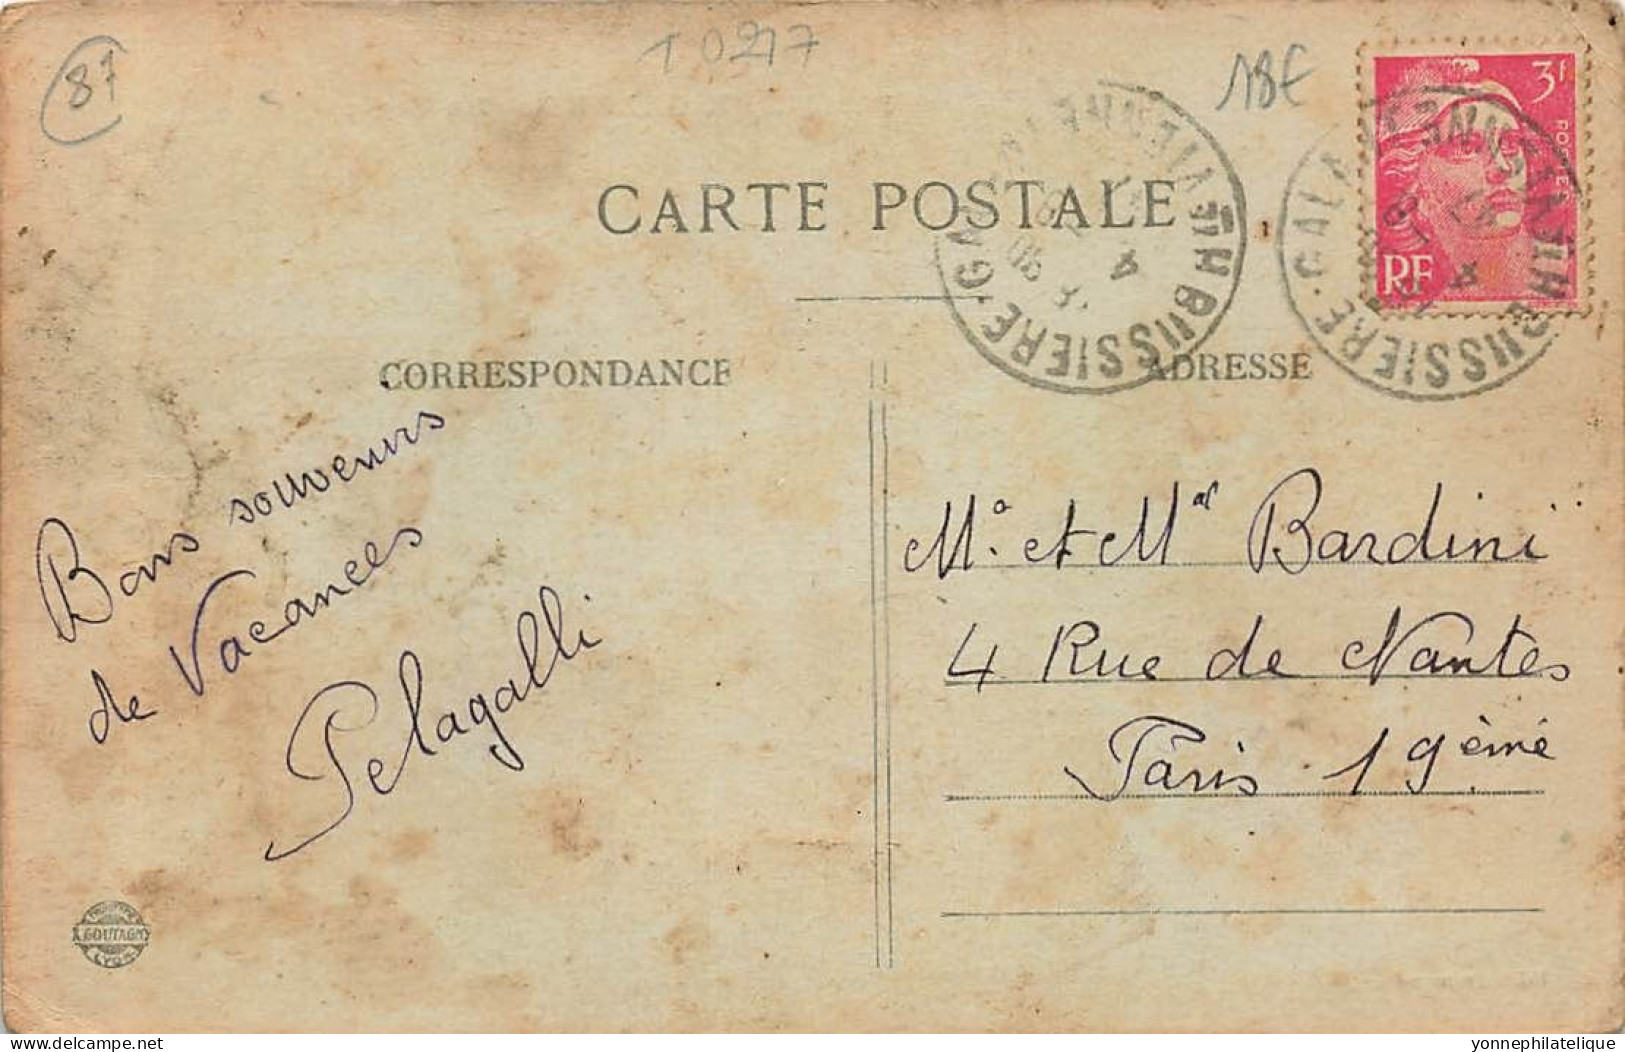 87
T 0217
18€
3f
POSTES
RF
BUSSIERE-GALANT HTE VIENNE
BUSSIERE-GALANT HTE VIENNE
CARTE POSTALE
CORRESPONDANCE
ADRESSE
Bons souvenirs
de Vacances
Pelagalli
Mr. et Mme Bardini
4 Rue de Nantes
Paris 19ème
GOUTAGNY
LYON
Website: delcampe.net
yonnephilatelique